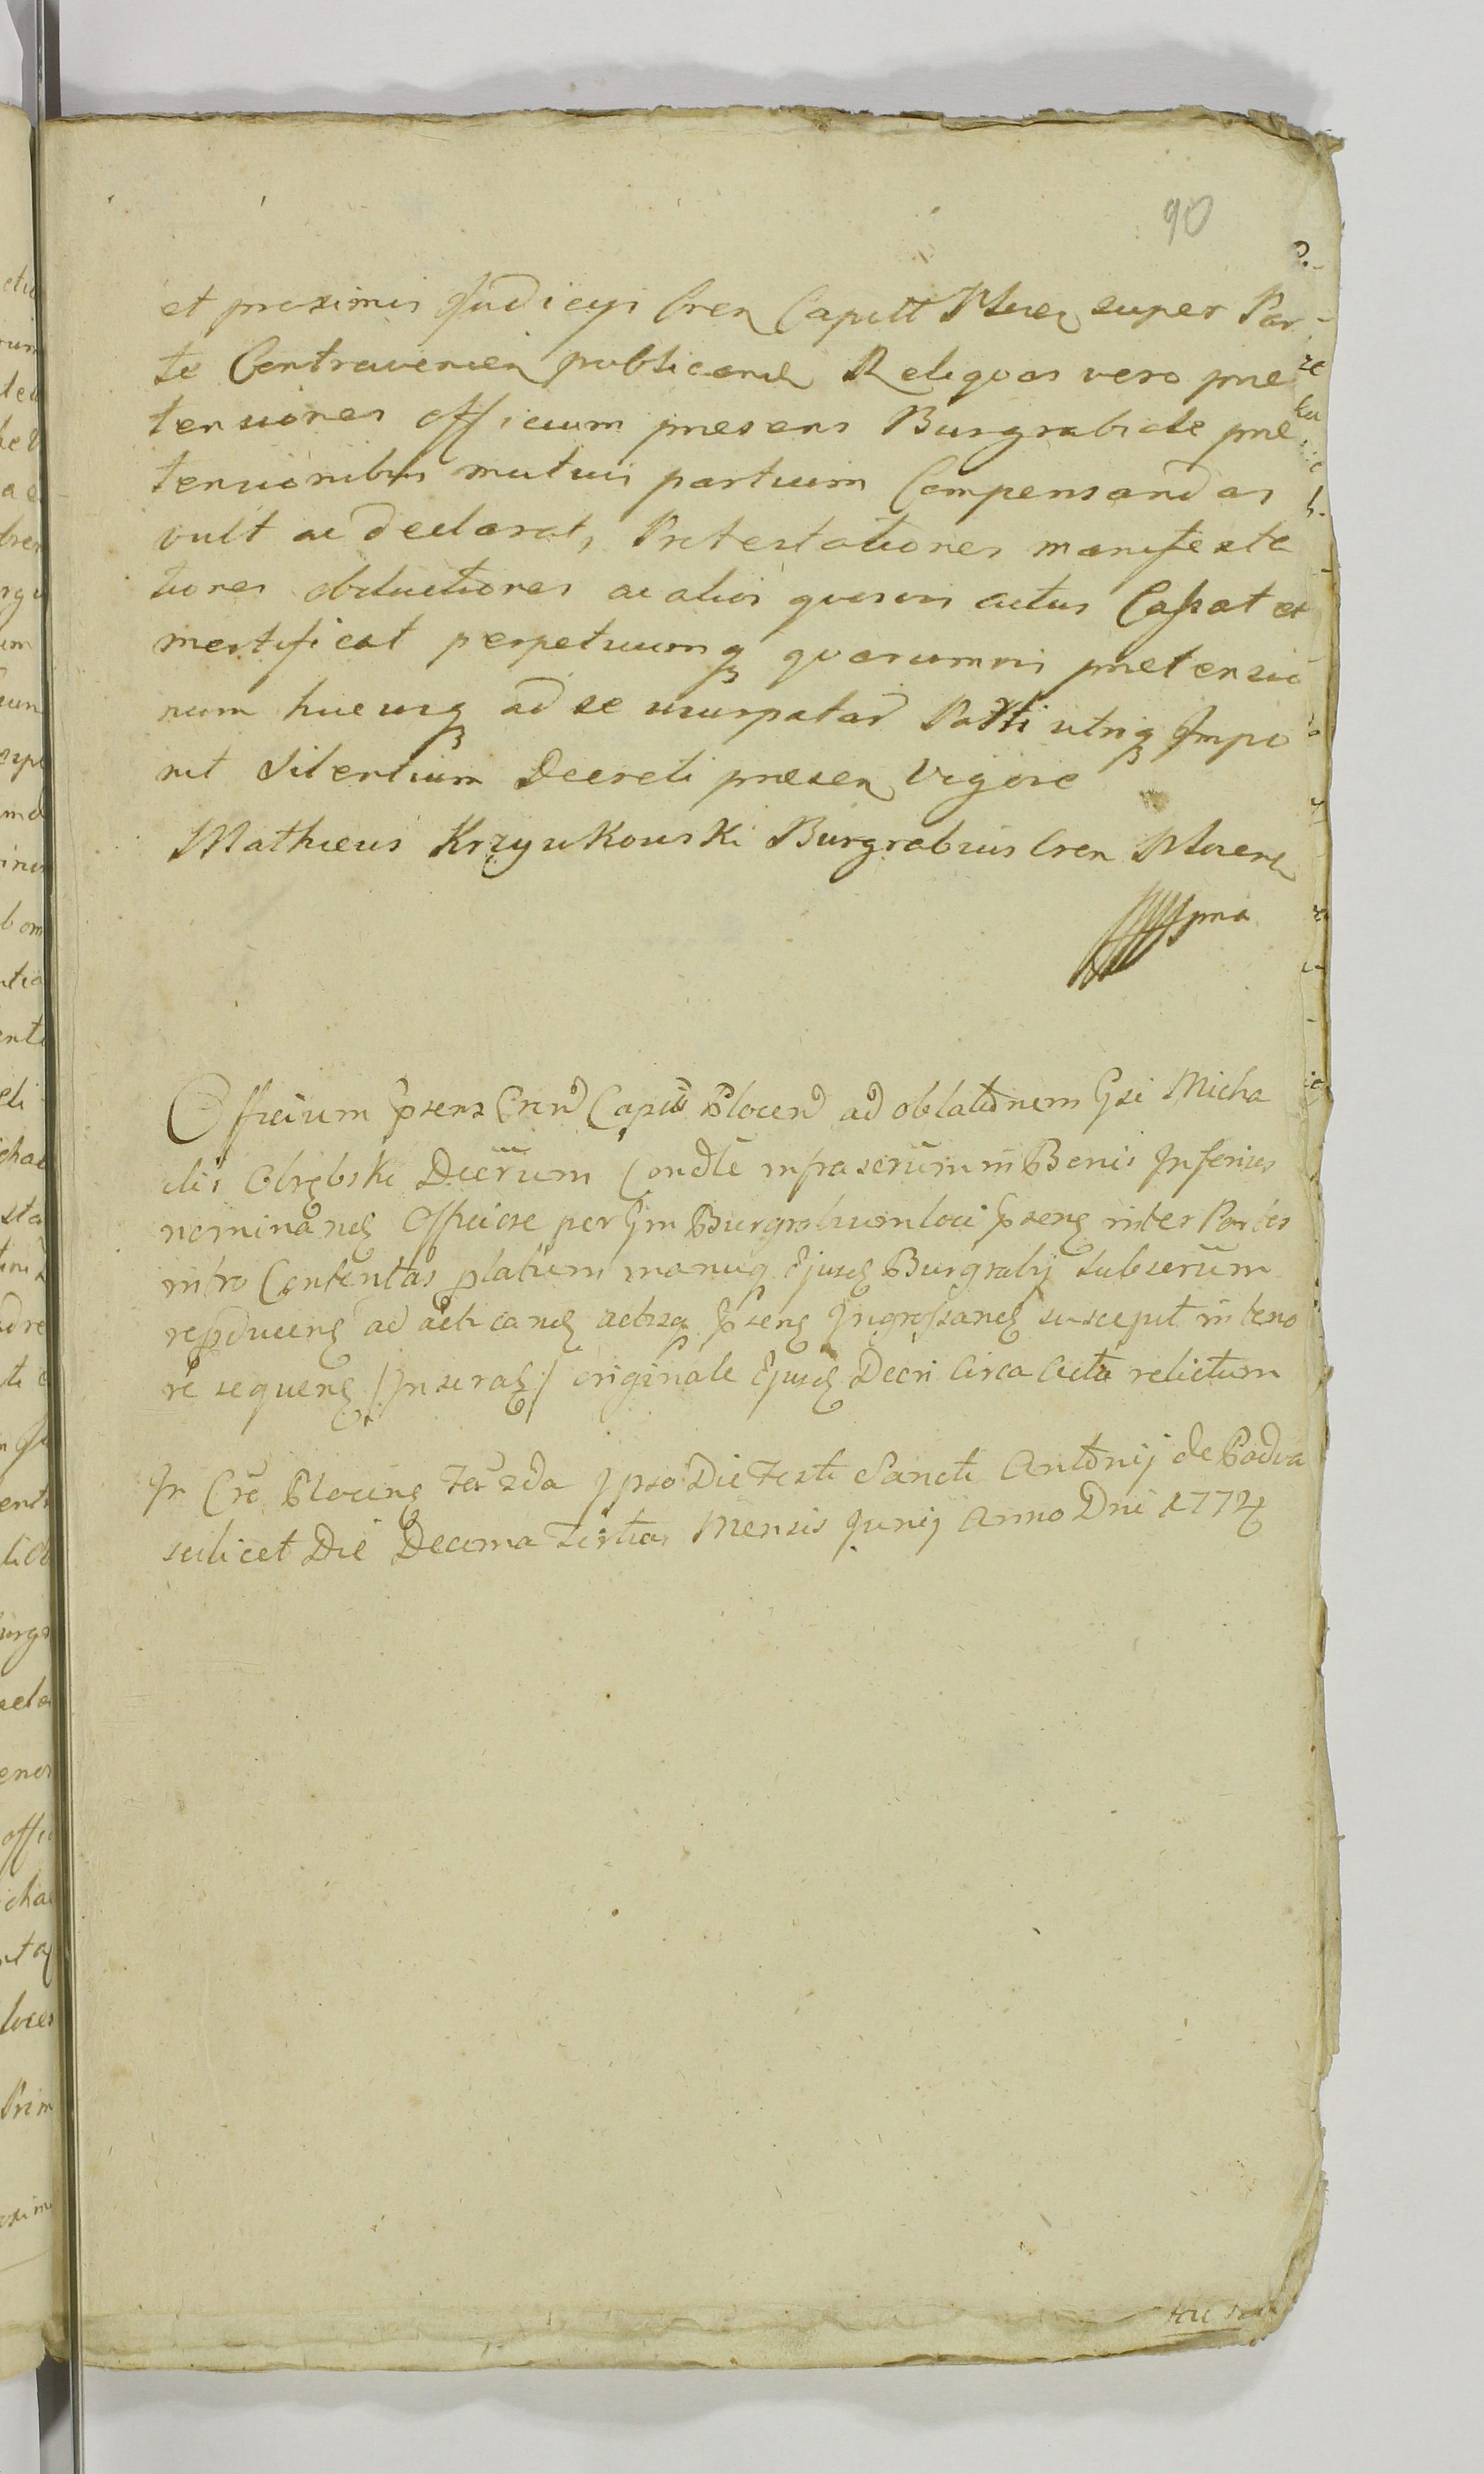 90
et proximis Judicijs Cren Capitt Plocen super Par
te Contravenien publicand Reliquas vero præ
tensiones officium præsens Burgrabiale præ
tensionibus mutuis partium Compensandas
vult ac declarat, Protestationes manifesta
tiones obductiones ac alios quosvis actus Cassat et
mortificat perpetuumq quarumvis prætensio
num hucusq ad se usurpatar Patti utriq Impo
nit silentium Decreti præsen vigore
Mathæus Krzyukowski Burgrabius Cren Plocen
mpria
Officium præsens Cren Capitt Plocen ad oblatnem Gsi Micha
elis Obrębski Decrum Condle infrascrum in Bonis Inferius
nominand Officiose per Gm Burgrabium loci præsen inter Partes
intro Contentas platum manuq Ejusd Burgrabij subscrum
reproducend ad acticand actisq præsen Ingrossand suscepit in teno
re sequen /Inserat/ originale Ejusd Decri Circa Acta relictum
In Cro Plocen Feria 2da Ipso Die Festi Sancti Antonij de Padua
scilicet Die Decima Tertia Mensis Junij Anno Dni 1774